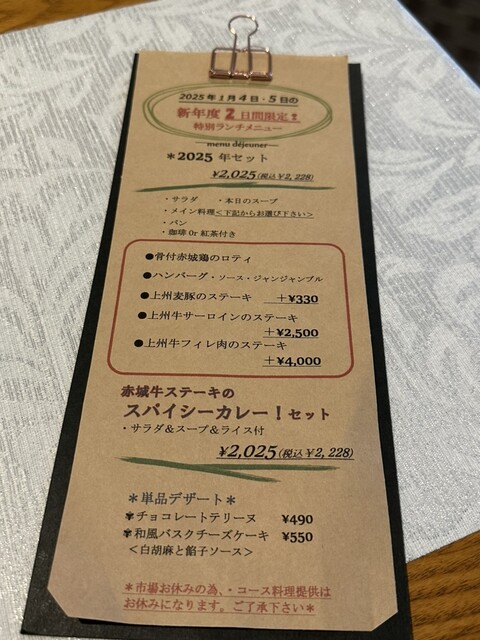 2025年1月4日・5日の
新年度2日間限定!
特別ランチメニュー
menu déjeuner
*2025年セット
¥2,025(税込¥2,228)
・サラダ ・本日のスープ
・メイン料理<下記からお選び下さい>
・パン
・珈琲Or紅茶付き
●骨付赤城鶏のロティ
●ハンバーグ・ソース・ジャンジャンブル
●上州麦豚のステーキ +¥330
●上州牛サーロインのステーキ
+¥2,500
●上州牛フィレ肉のステーキ
+¥4,000
赤城牛ステーキの
スパイシーカレー!セット
・サラダ&スープ&ライス付
¥2,025(税込¥2,228)
*単品デザート*
✾チョコレートテリーヌ ¥490
✾和風バスクチーズケーキ ¥550
<白胡麻と餡子ソース>
*市場お休みの為、・コース料理提供は
お休みになります。ご了承下さい*